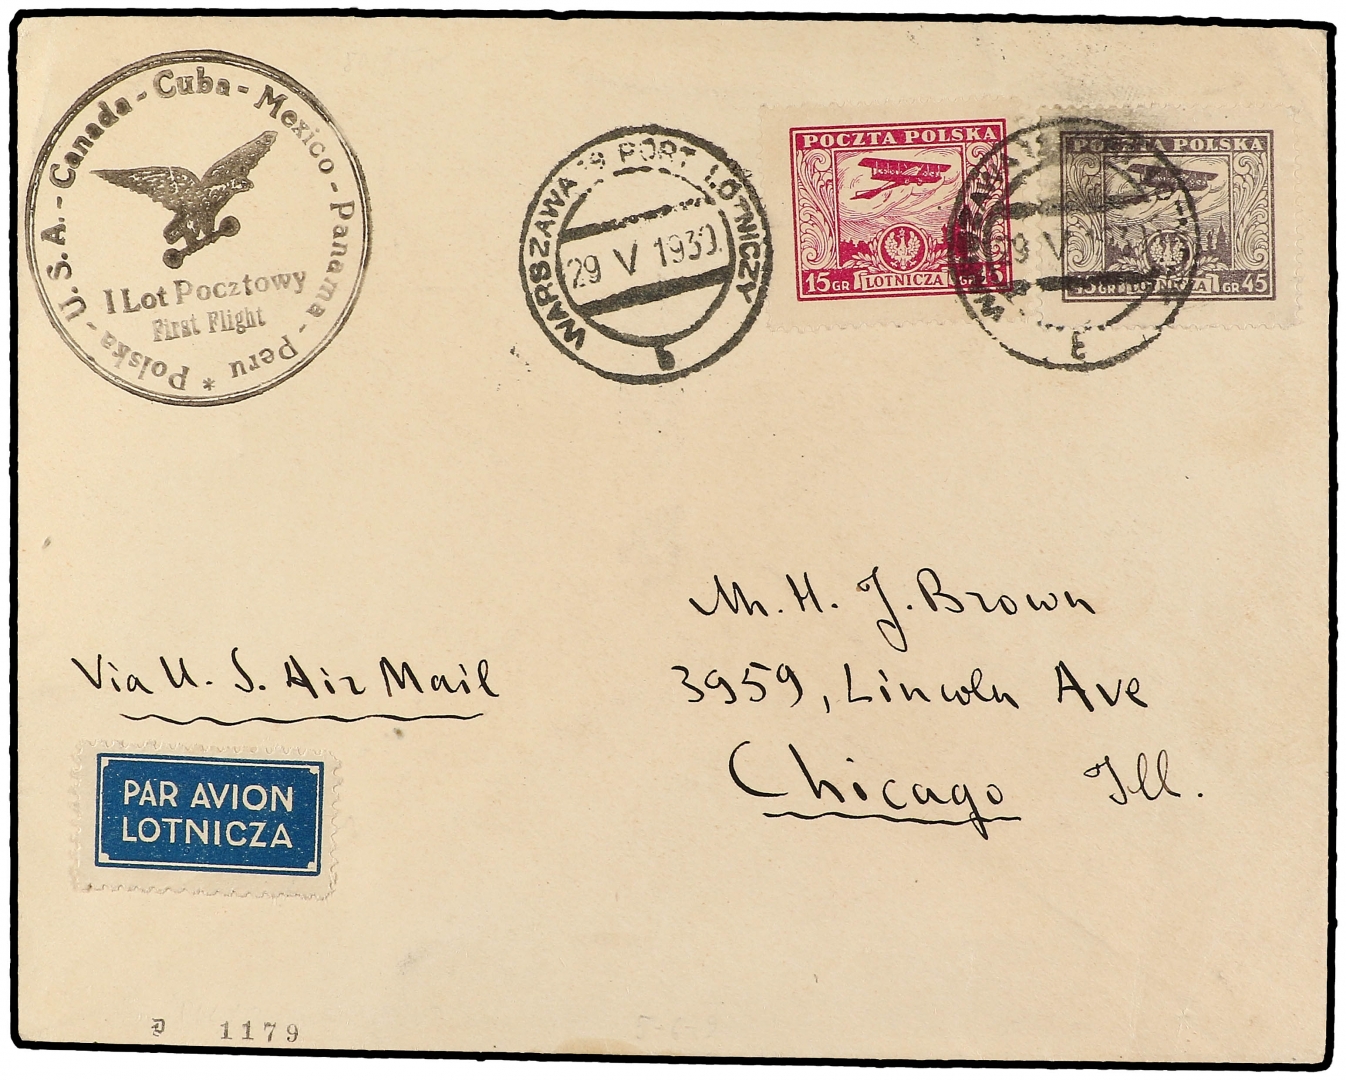 Polska - U.S.A. - Canada - Cuba - Mexico - Panama - Peru *
I Lot Pocztowy
First Flight
WARSZAWA 19 PORT LOTNICZY
29 V 1930
b
POCZTA POLSKA
15 GR LOTNICZA GR 15
POCZTA POLSKA
45 GR LOTNICZA GR 45
WARSZAWA
29 V
E
Mr. H. J. Brown
3959, Lincoln Ave
Chicago Ill.
Via U. S. Air Mail
PAR AVION
LOTNICZA
1179